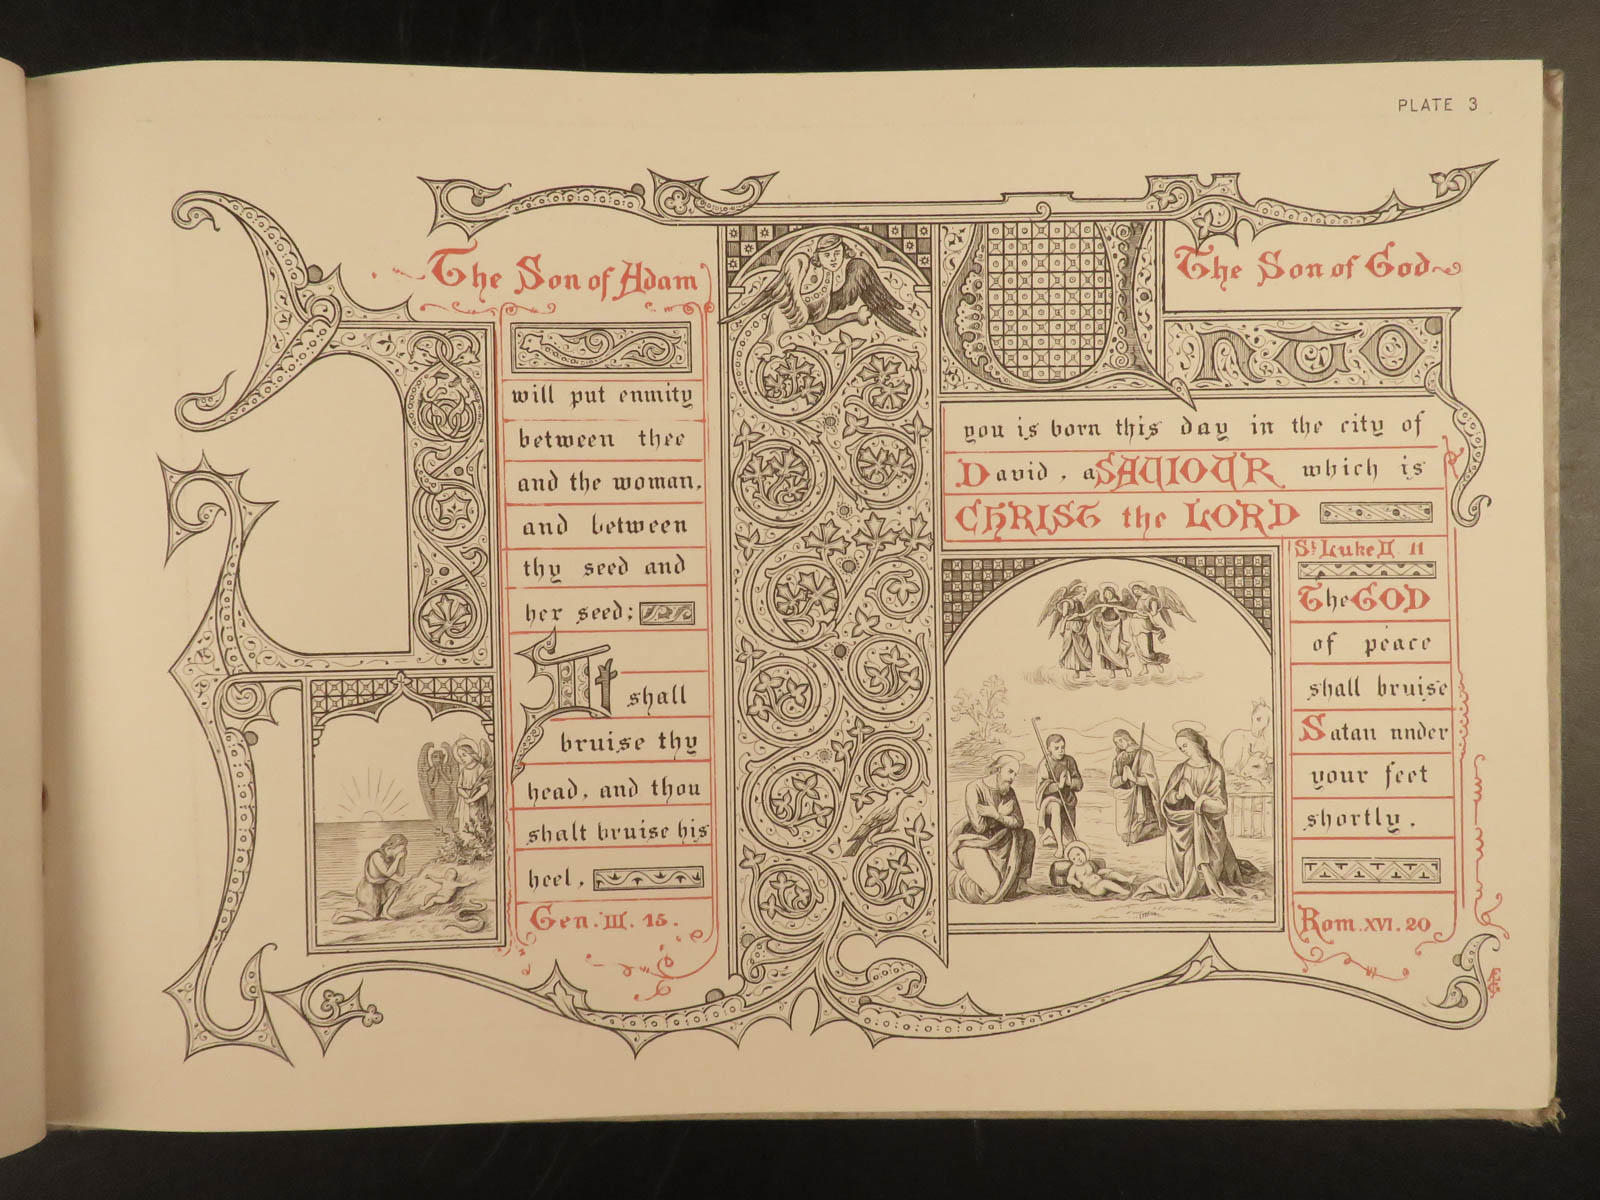 PLATE 3
The Son of Adam
I
will put enmity
between thee
and the woman,
and between
thy seed and
her seed;
It shall
bruise thy
head, and thou
shalt bruise his
heel,
Gen. III. 15.
The Son of God
UNTO
you is born this day in the city of
David, a SAVIOUR which is
CHRIST the LORD
St Luke II. 11
The GOD
of peace
shall bruise
Satan under
your feet
shortly.
Rom. XVI. 20